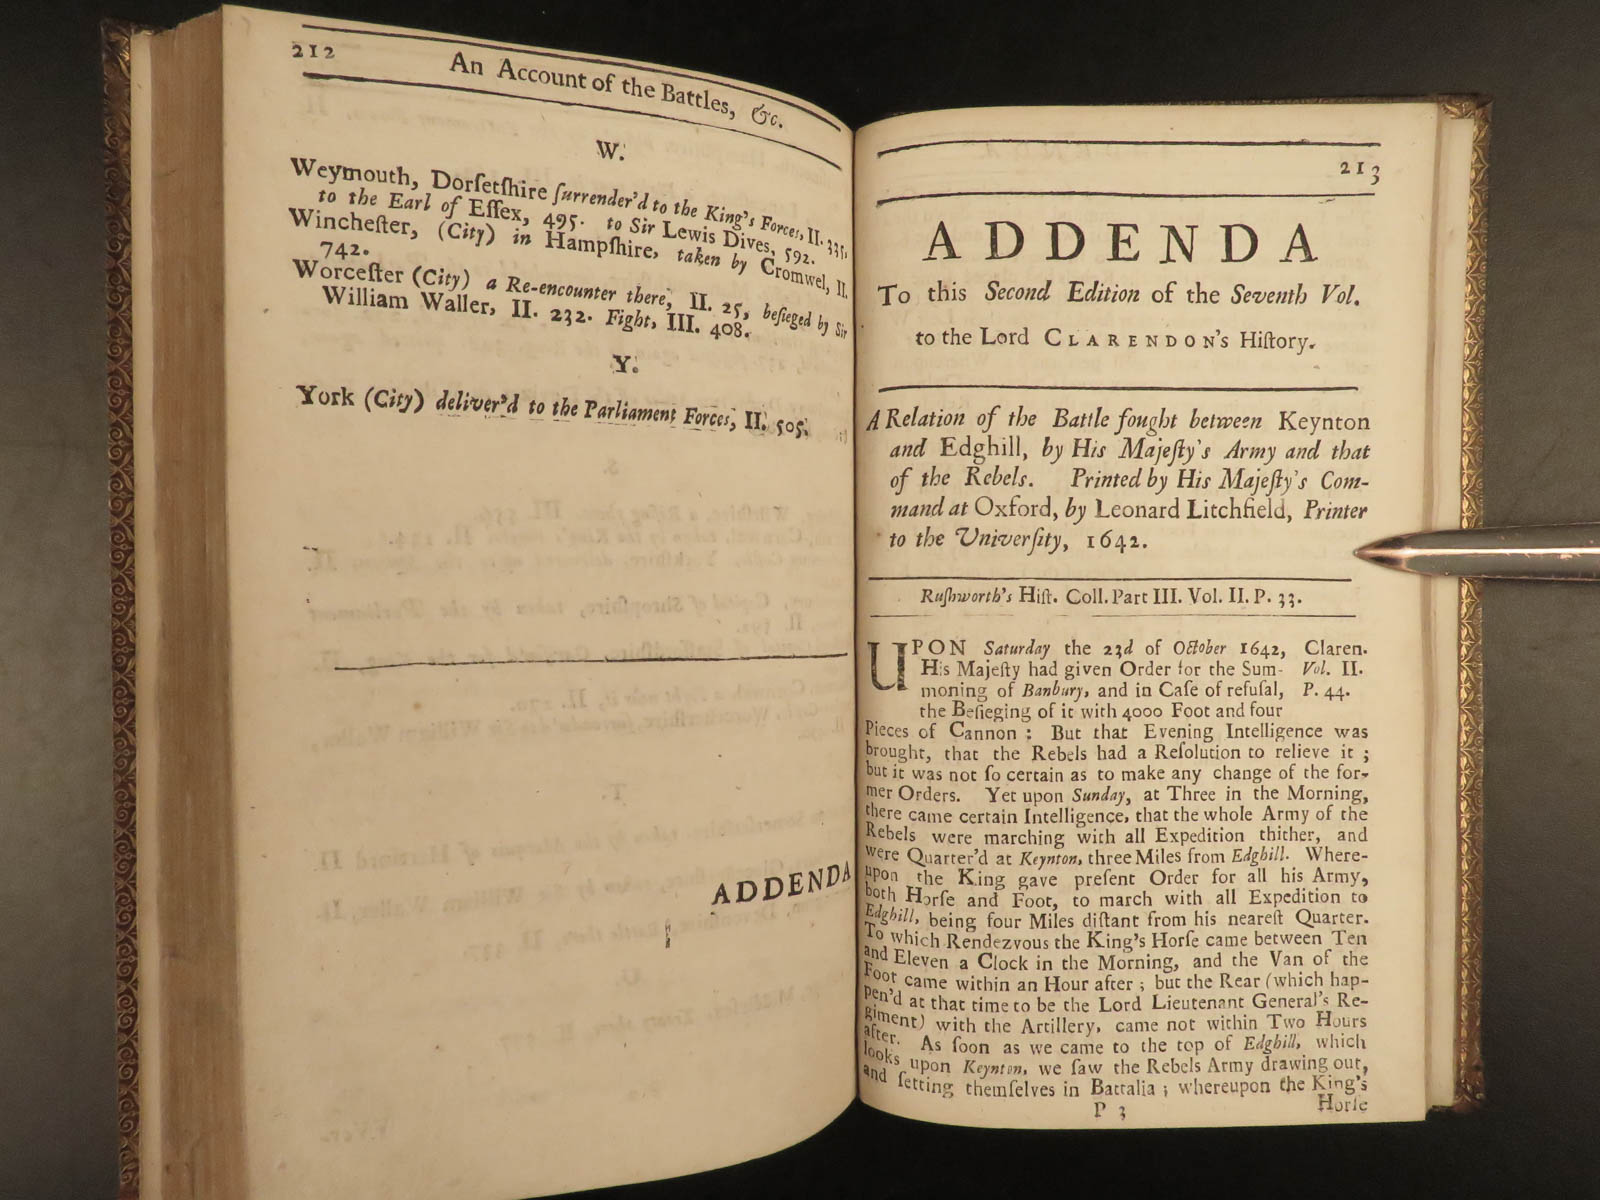 212
An Account of the Battles, &c.
W.
Weymouth, Dorſetſhire ſurrender'd to the King's Forces, II. 335,
to the Earl of Eſſex, 495. to Sir Lewis Dives, 592.
Wincheſter, (City) in Hampſhire, taken by Cromwel, II.
742.
Worceſter (City) a Re-encounter there, II. 25, beſieged by Sir
William Waller, II. 232. Fight, III. 408.
Y.
York (City) deliver'd to the Parliament Forces, II. 505.
ADDENDA
213
ADDENDA
To this Second Edition of the Seventh Vol.
to the Lord CLARENDON's Hiſtory.
A Relation of the Battle fought between Keynton
and Edghill, by His Majeſty's Army and that
of the Rebels. Printed by His Majeſty's Com-
mand at Oxford, by Leonard Litchfield, Printer
to the Univerſity, 1642.
Ruſhworth's Hiſt. Coll. Part III. Vol. II. P. 33.
UPON Saturday the 23d of October 1642, Claren.
His Majeſty had given Order for the Sum- Vol. II.
moning of Banbury, and in Caſe of refuſal, P. 44.
the Beſieging of it with 4000 Foot and four
Pieces of Cannon : But that Evening Intelligence was
brought, that the Rebels had a Reſolution to relieve it ;
but it was not ſo certain as to make any change of the for-
mer Orders. Yet upon Sunday, at Three in the Morning,
there came certain Intelligence, that the whole Army of the
Rebels were marching with all Expedition thither, and
were Quarter'd at Keynton, three Miles from Edghill. Where-
upon the King gave preſent Order for all his Army,
both Horſe and Foot, to march with all Expedition to
Edghill, being four Miles diſtant from his neareſt Quarter.
To which Rendezvous the King's Horſe came between Ten
and Eleven a Clock in the Morning, and the Van of the
Foot came within an Hour after ; but the Rear (which hap-
pen'd at that time to be the Lord Lieutenant General's Re-
giment) with the Artillery, came not within Two Hours
after. As ſoon as we came to the top of Edghill, which
looks upon Keynton, we ſaw the Rebels Army drawing out,
and ſetting themſelves in Battalia ; whereupon the King's
P 3
Horſe